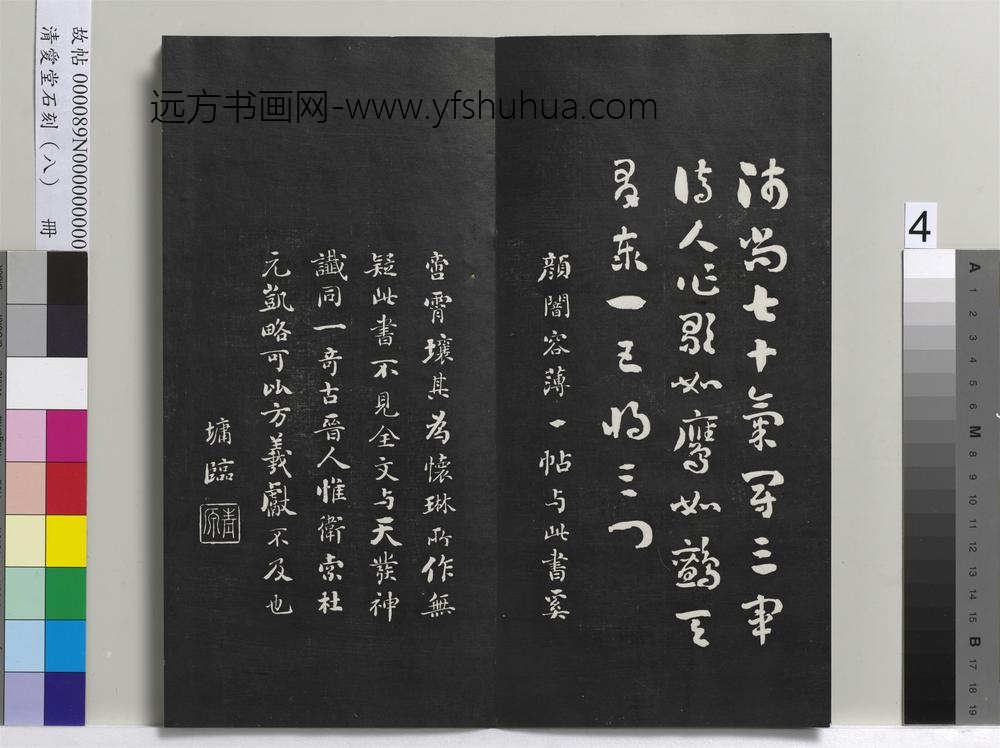 故帖 000089N000000000
清愛堂石刻（八） 冊
远方书画网-www.yfshuhua.com
師尚七十氣冠三軍
詩人作歌如鷹如鸇天
有太一五將三門
顏闇容薄一帖与此書奚
啻霄壤其為懷琳所作無
疑此書不見全文与天發神
讖同一奇古晉人惟衛索杜
元凱略可比方羲獻不及也
墉臨
青原
4
A 1 2 3 4 5 6 M 8 9 10 11 12 13 14 15 B 17 18 19